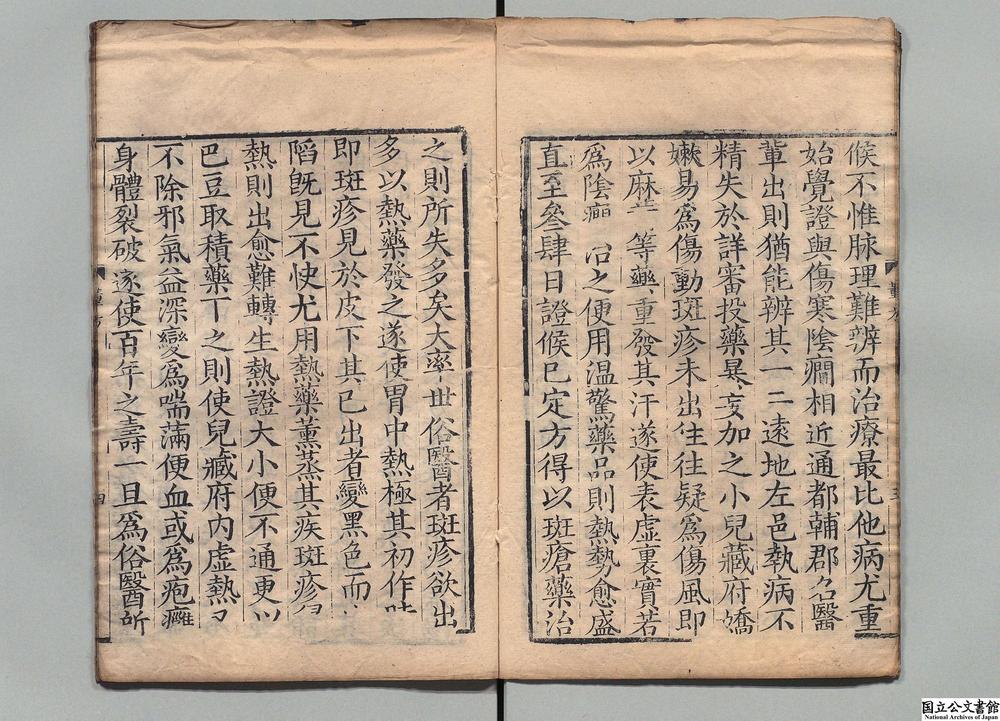 候不惟脉理難辨而治療最比他病尤重
始覺證與傷寒陰癎相近通都輔郡名醫
軰出則猶能辨其一二遠地左邑執病不
精失於詳審投藥暴妄加之小兒藏府嬌
嫩易爲傷動斑疹未出往往疑爲傷風即
以麻 等藥重發其汗遂使表虛裏實若
爲陰癎 治之便用温驚藥品則熱勢愈盛
直至叁肆日證候已定方得以斑瘡藥治
之則所失多矣大率世俗醫者斑疹欲出
多以熱藥發之遂使胃中熱極其初作時
即斑疹見於皮下其已出者變黑色而
陷既見不快尤用熱藥薰蒸其疾斑疹
熱則出愈難轉生熱證大小便不通更以
巴豆取積藥丁之則使兒藏府内虛熱又
不除邪氣益深變爲喘滿便血或爲疱癰
身體裂破遂使百年之壽一旦爲俗醫所
国立公文書館
National Archives of Japan